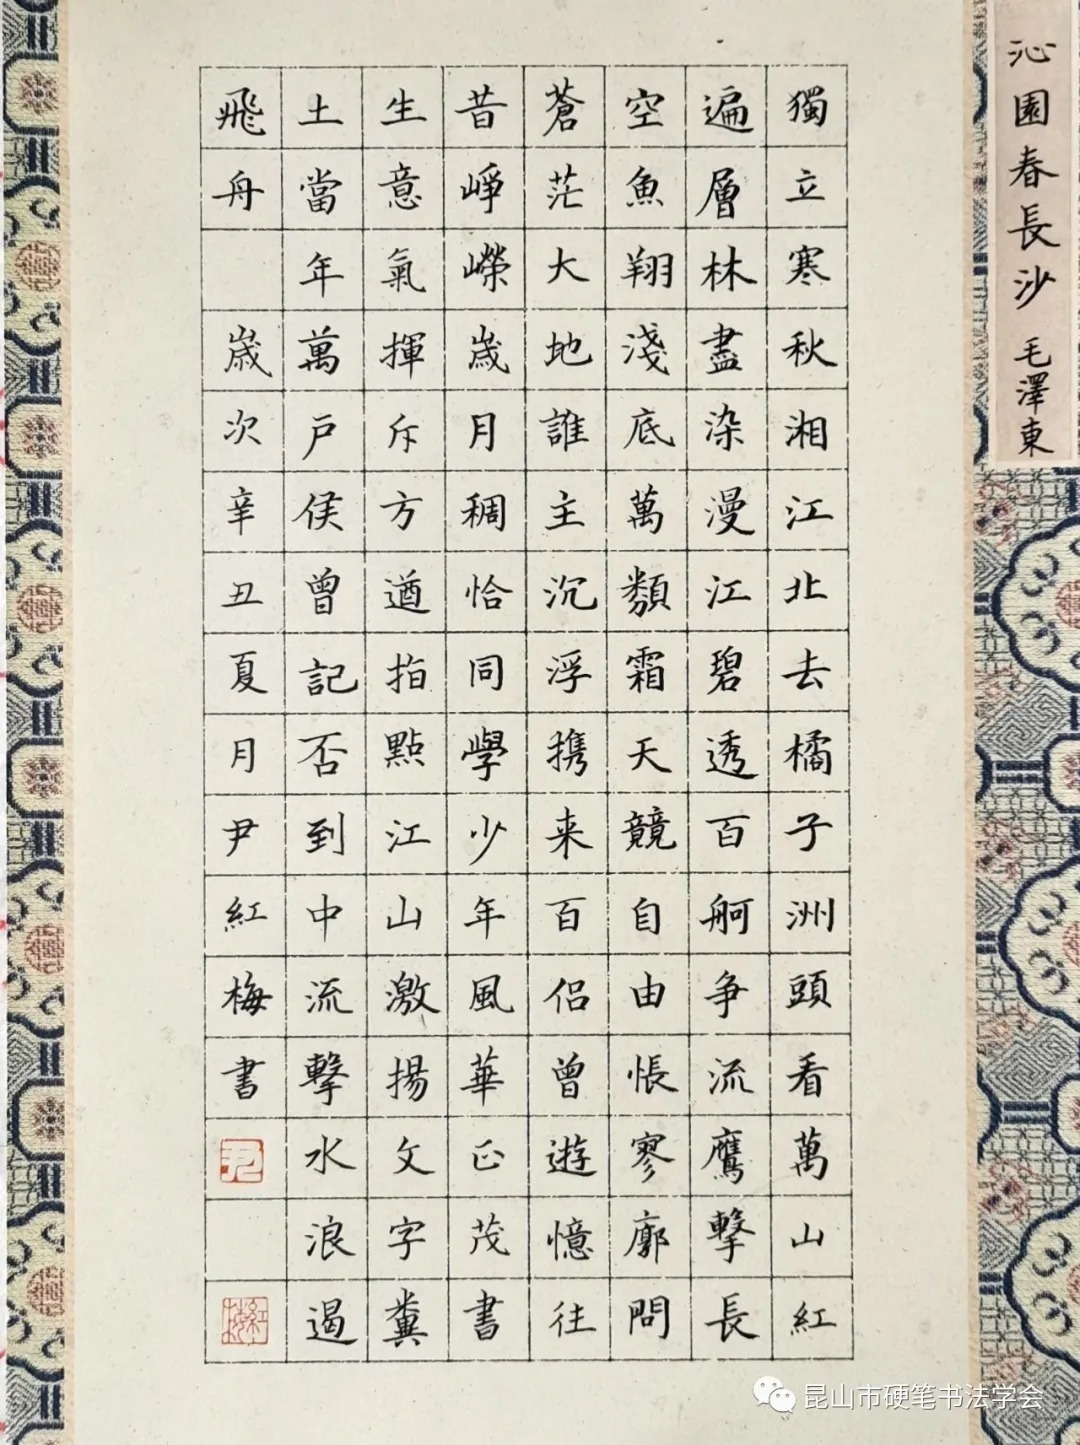 沁園春長沙 毛澤東
獨立寒秋湘江北去橘子洲頭看萬山紅
遍層林盡染漫江碧透百舸争流鷹擊長
空魚翔淺底萬類霜天競自由悵寥廓問
蒼茫大地誰主沉浮携来百侣曾遊憶往
昔崢嶸歲月稠恰同學少年風華正茂書
生意氣揮斥方遒指點江山激揚文字糞
土當年萬戶侯曾記否到中流擊水浪遏
飛舟 歲次辛丑夏月尹紅梅書
尹
紅梅
昆山市硬笔书法学会